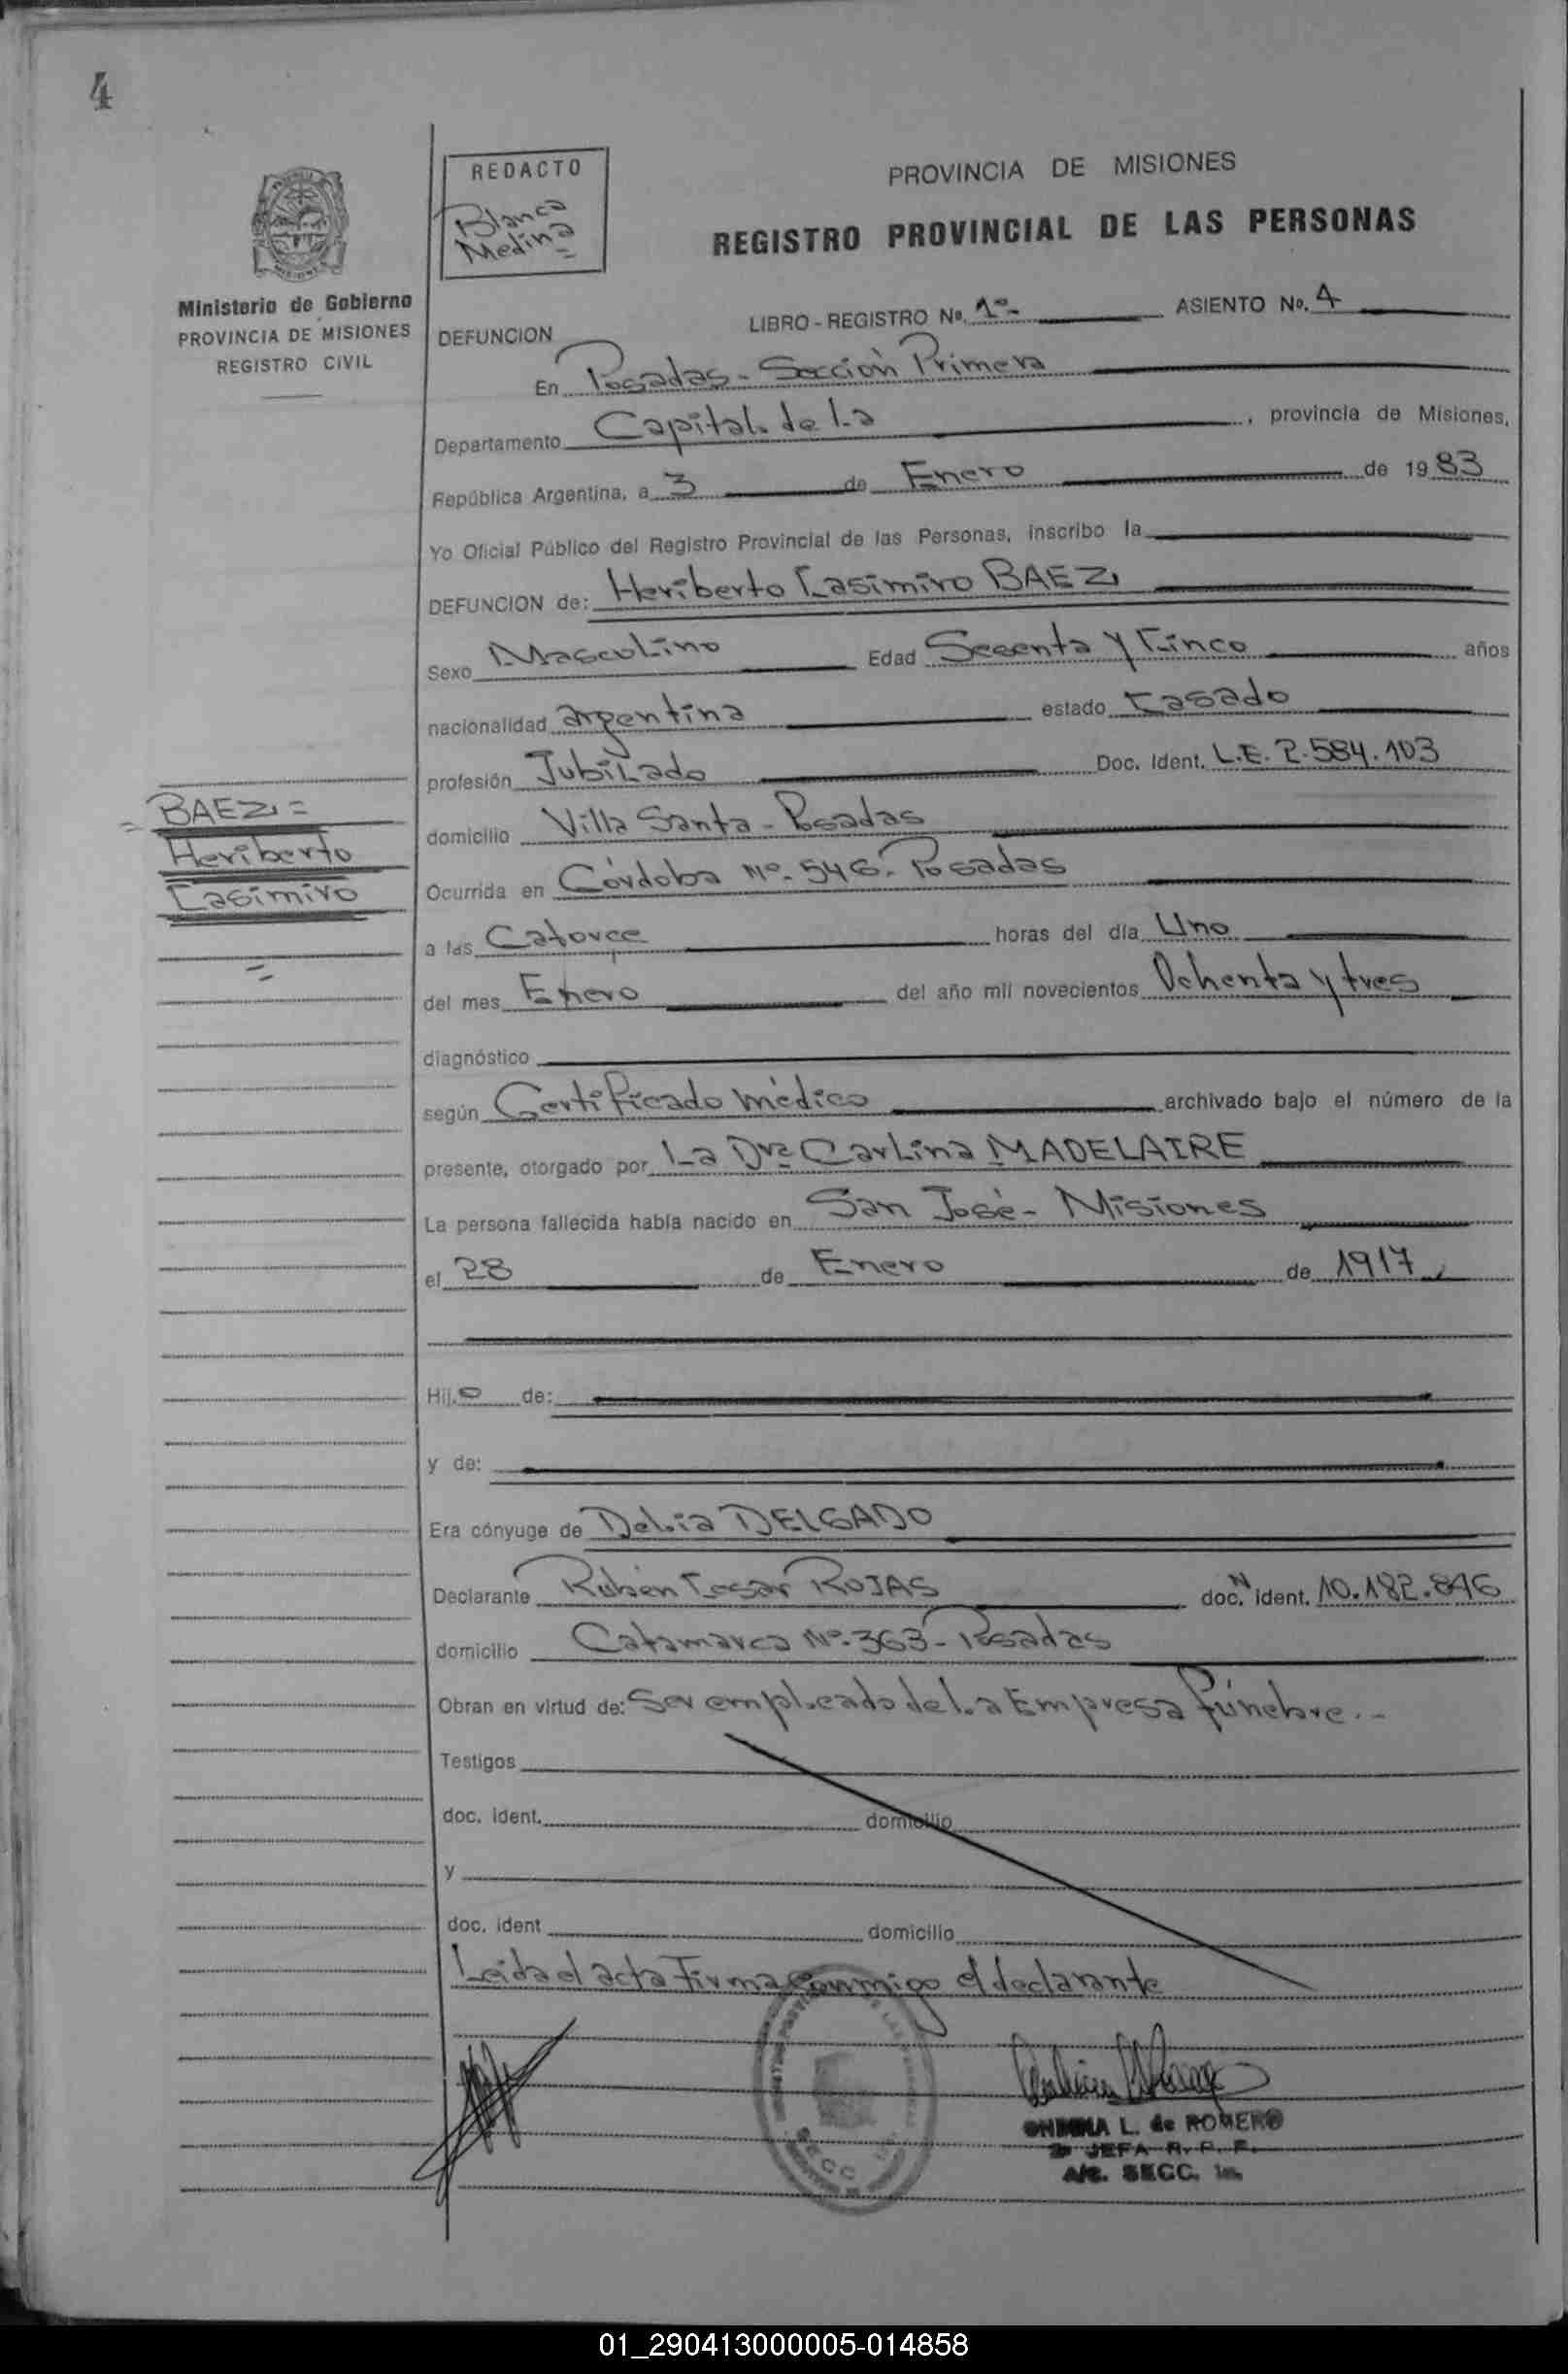 4
REDACTO
Blanca
Medina =
PROVINCIA DE MISIONES
REGISTRO PROVINCIAL DE LAS PERSONAS
Ministerio de Gobierno
PROVINCIA DE MISIONES
REGISTRO CIVIL
DEFUNCION
LIBRO - REGISTRO Nº. 1º- ASIENTO Nº. 4
En Posadas - Sección Primera
Departamento Capital de La , provincia de Misiones,
República Argentina, a 3 de Enero de 1983
Yo Oficial Público del Registro Provincial de las Personas, inscribo la
DEFUNCION de: Heriberto Casimiro BAEZ
Sexo Masculino Edad Sesenta y Cinco años
nacionalidad argentina estado Casado
profesión Jubilado Doc. Ident. L.E. 2.584.103
= BAEZ =
Heriberto
Casimiro
=
domicilio Villa Santa - Posadas
Ocurrida en Córdoba Nº. 546. Posadas
a las Catorce horas del día Uno
del mes Enero del año mil novecientos Ochenta y tres
diagnóstico
según Certificado médico archivado bajo el número de la
presente, otorgado por La Dra Carlina MADELAIRE
La persona fallecida había nacido en San José - Misiones
el 28 de Enero de 1917
Hij.o de:
y de:
Era cónyuge de Delia DELGADO
Declarante Rubén Cesar ROJAS doc. N ident. 10.182.846
domicilio Catamarca Nº. 363 - Posadas
Obran en virtud de: Ser empleado de la Empresa fúnebre. -
Testigos
doc. ident. domicilio
y
doc. ident domicilio
Leida el acta firma conmigo el declarante
SECC
L. de ROMERO
JEFA R. P. P.
A/C. SECC. 1a.
01_290413000005-014858